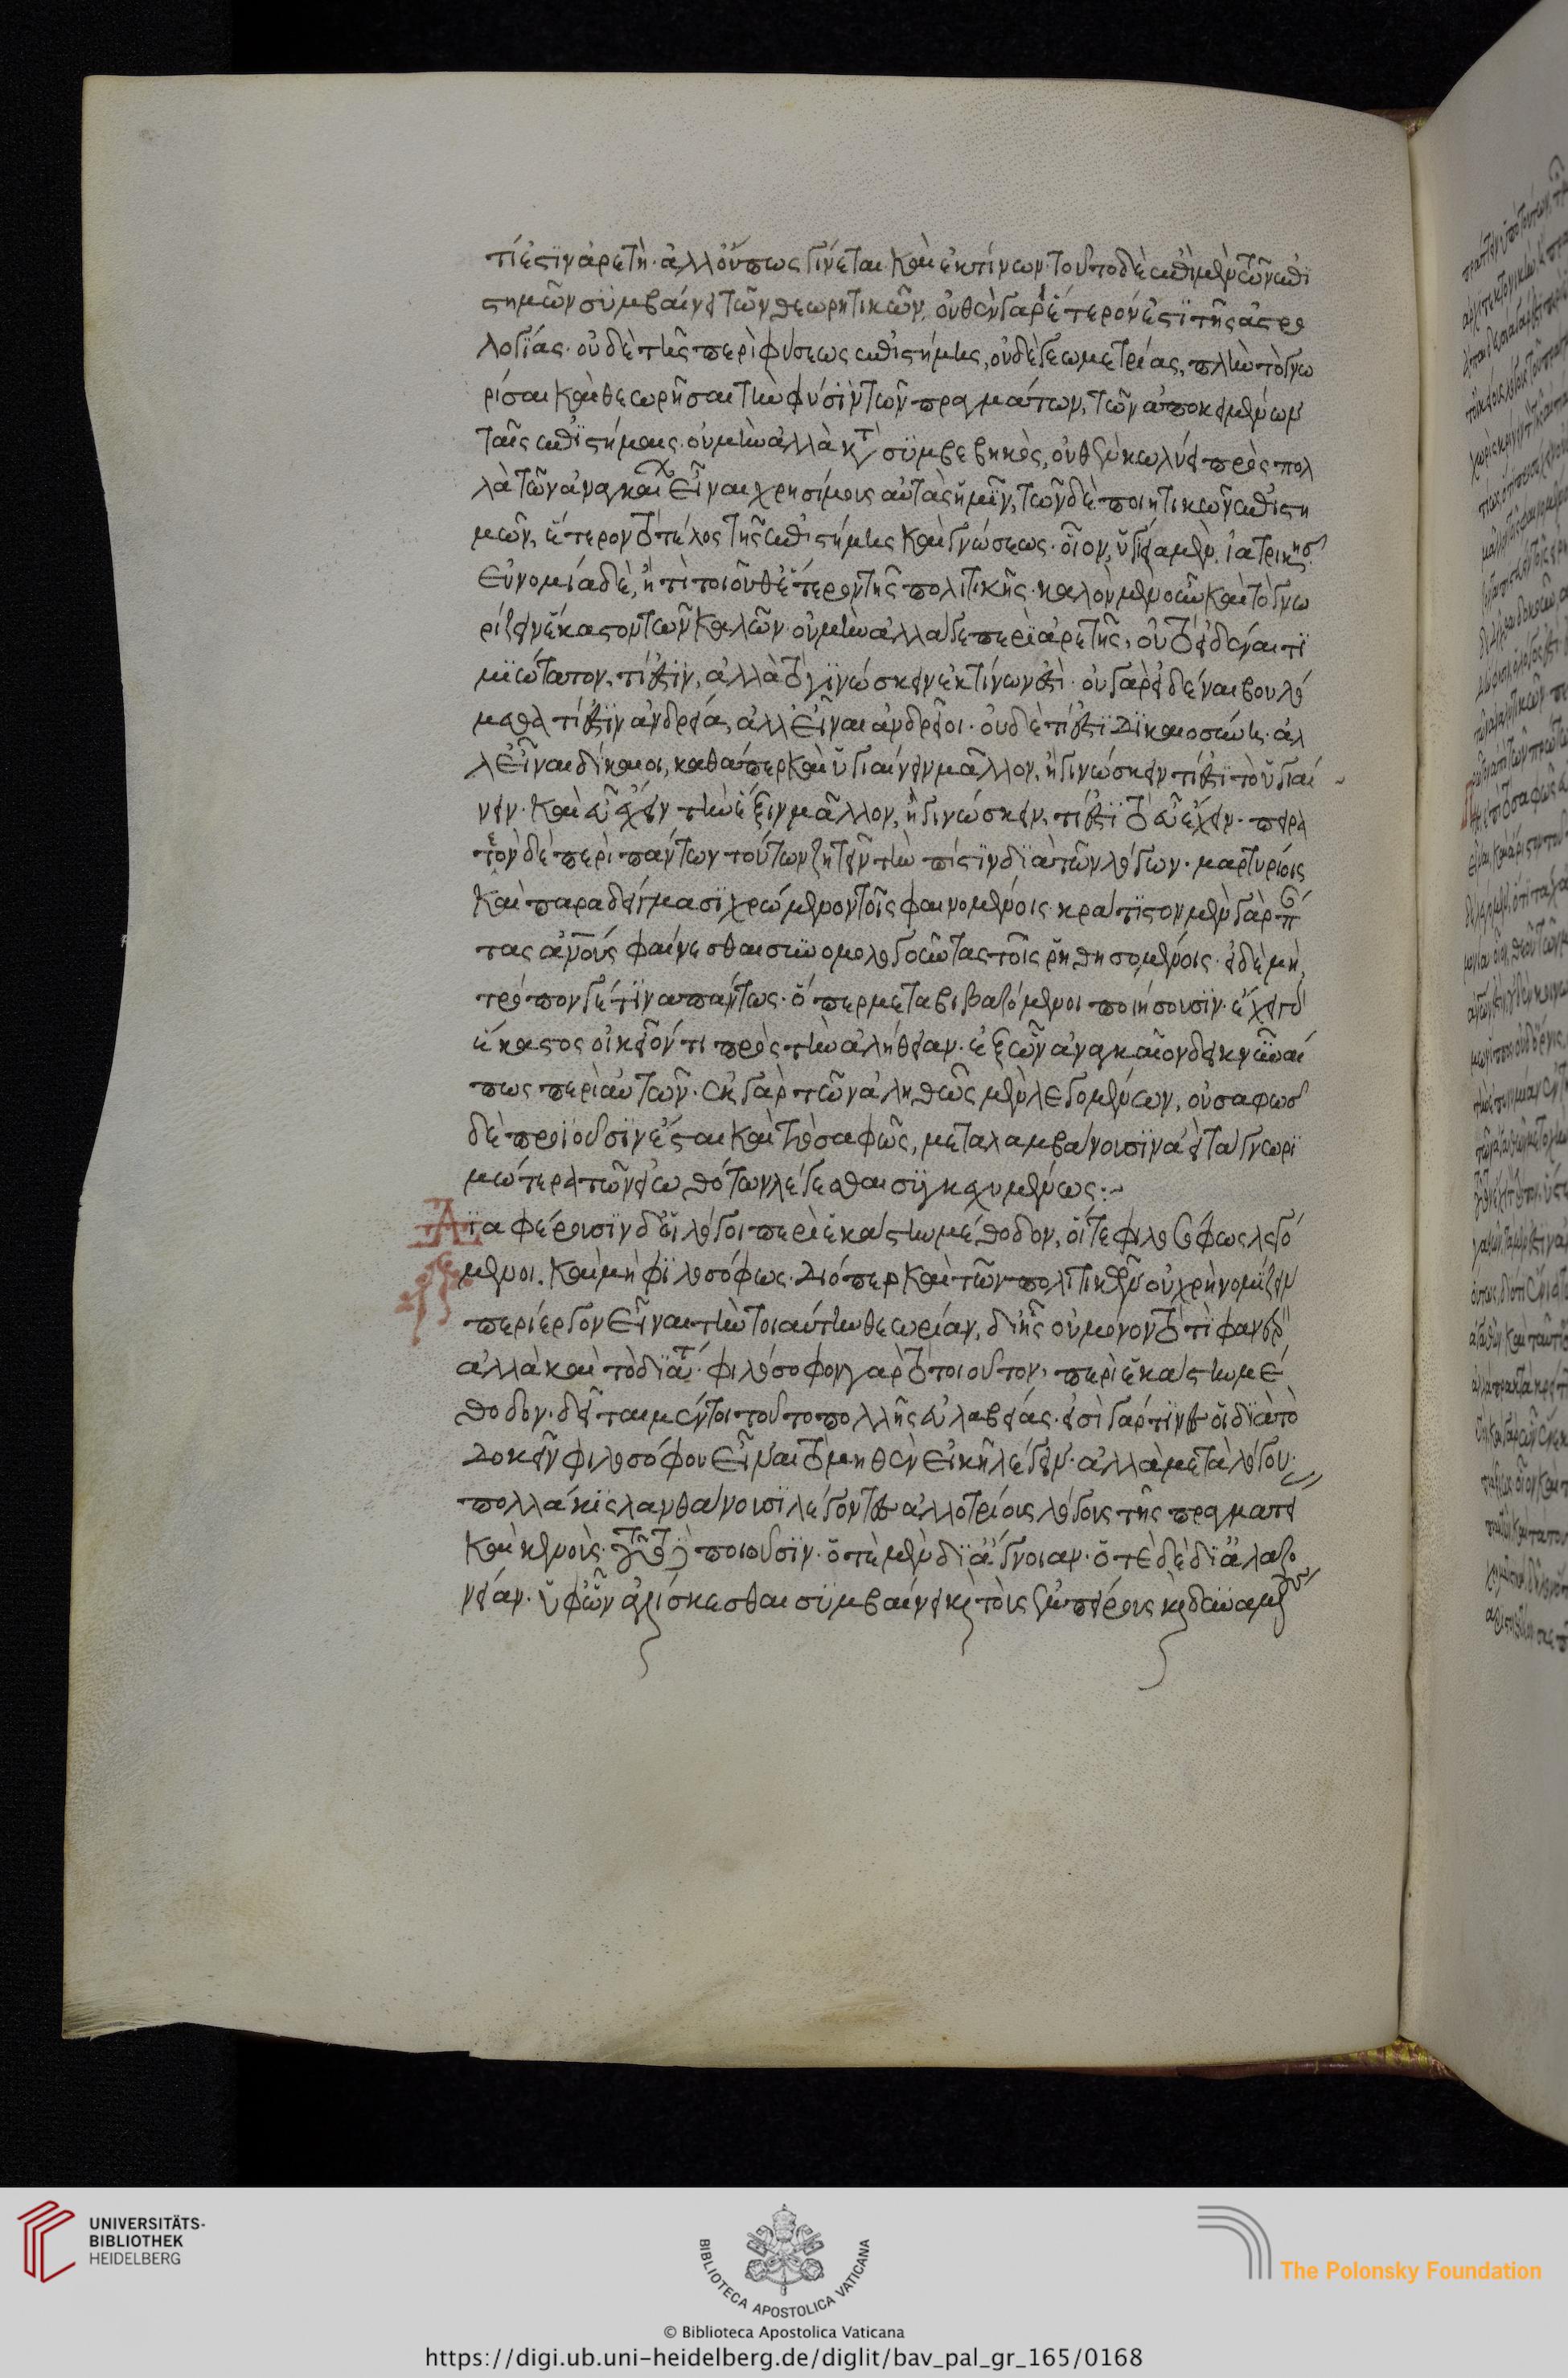 τί ἐστιν ἀρετὴ· ἀλλ' οὔ πως γίνεται καὶ ἐκ τίνων· τοῦτο δὲ ἐπὶ μὲν τῶν ἐπι
στημῶν συμβαίνει τῶν θεωρητικῶν, οὐθὲν γὰρ ἕτερον ἐστὶ τῆς ἀστρο
λογίας· οὐδὲ τῆς περὶ φύσεως ἐπιστήμης, οὐδὲ γεωμετρίας, πλὴν τὸ γνω
ρίσαι καὶ θεωρῆσαι τὴν φύσιν τῶν πραγμάτων, τῶν ὑποκειμένων
ταῖς ἐπιστήμαις· οὐ μὴν ἀλλὰ κατὰ συμβεβηκὸς, οὐθὲν κωλύει πρὸς πολ
λὰ τῶν ἀναγκαίων εἶναι χρησίμοις αὐτὰς ἡμῖν, τῶν δὲ ποιητικῶν ἐπιστη
μῶν, ἕτερον τὸ τέλος τῆς ἐπιστήμης καὶ γνώσεως· οἷον, ὑγίεια μὲν, ἰατρικῆς·
εὐνομία δὲ, ἤ τι τοιοῦθ' ἕτερον τῆς πολιτικῆς· καλὸν μὲν οὖν καὶ τὸ γνω
ρίζειν ἕκαστον τῶν καλῶν· οὐ μὴν ἀλλά γε περὶ ἀρετῆς, οὐ τὸ εἰδέναι τι
μιώτατον, τί ἐστιν, ἀλλὰ τὸ γινώσκειν ἐκ τίνων ἐστὶ· οὐ γὰρ εἰδέναι βουλό
μεθα τί ἐστιν ἀνδρεία, ἀλλ' εἶναι ἀνδρεῖοι· οὐδὲ τί ἐστι δικαιοσύνη· ἀλ
λ' εἶναι δίκαιοι, καθάπερ καὶ ὑγιαίνειν μᾶλλον, ἢ γινώσκειν τί ἐστι τὸ ὑγιαί
νειν· καὶ εὖ ἔχειν τὴν ἕξιν μᾶλλον, ἢ γινώσκειν, τί ἐστι τὸ εὖ ἔχειν· πειρα
τέον δὲ περὶ πάντων τούτων ζητεῖν τὴν πίστιν διὰ τῶν λόγων· μαρτυρίοις
καὶ παραδείγμασι χρώμενον τοῖς φαινομένοις· κράτιστον μὲν γὰρ π
τας ἀνους φαίνεσθαι συνομολογοῦντας τοῖς ῥηθησομένοις· εἰ δὲ μὴ,
τρόπον γέ τινα πάντως· ὅπερ μεταβιβαζόμενοι ποιήσουσιν· ἔχει γὰρ
ἕκαστος οἰκεῖόν τι πρὸς τὴν ἀλήθειαν· ἐξ ὧν ἀναγκαῖον δεικνύναι
πως περὶ αὐτῶν· ἐκ γὰρ τῶν ἀληθῶς μὲν λεγομένων, οὐ σαφῶς
δὲ προϊοῦσιν ἔσται καὶ τὸ σαφῶς, μεταλαμβάνουσιν ἀεὶ τὰ γνωρι
μώτερα τῶν εἰωθότων λέγεσθαι συγκεχυμένως·
Διαφέρουσιν δ' οἱ λόγοι περὶ ἑκάστην μέθοδον, οἵ τε φιλοσόφως λεγό
μενοι. καὶ μὴ φιλοσόφως· διόπερ καὶ τῶν πολιτικῶν οὐ χρὴ νομίζειν
περίεργον εἶναι τὴν τοιαύτην θεωρίαν, δι' ἧς οὐ μόνον τὸ τί φανερὸν
ἀλλὰ καὶ τὸ διὰ τί· φιλόσοφον γὰρ τὸ τοιοῦτον, περὶ ἑκάστην μέ
θοδον· δεῖται μέντοι τοῦτο πολλῆς εὐλαβείας· εἰσὶ γάρ τινες οἳ διὰ τὸ
δοκεῖν φιλοσόφου εἶναι τὸ μηθὲν εἰκῆ λέγειν· ἀλλὰ μετὰ λόγου·
πολλάκις λανθάνουσι λέγοντες ἀλλοτρίους λόγους τῆς πραγματεί
καὶ κενούς· ποιοῦσιν· ὁτὲ μὲν δι' ἄγνοιαν· ὁτὲ δὲ δι' ἀλαζο
νείαν· ὑφ' ὧν ἁλίσκεσθαι συμβαίνει καὶ τοὺς ἐμπείρους καὶ δυναμένους
UNIVERSITÄTS-
BIBLIOTHEK
HEIDELBERG
BIBLIOTECA APOSTOLICA VATICANA
The Polonsky Foundation
© Biblioteca Apostolica Vaticana
https://digi.ub.uni-heidelberg.de/diglit/bav_pal_gr_165/0168